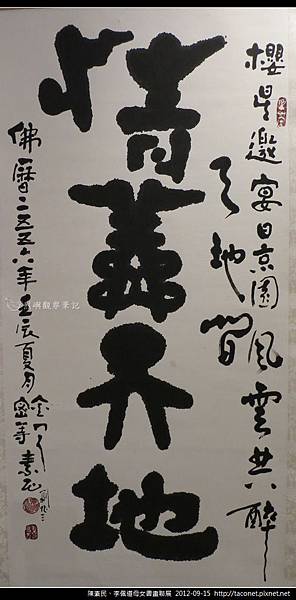 櫻星邀宴日京園風雲共醉
天地間
情義天地
佛曆二五五六年壬辰夏月
素民
嶼觀察筆記
陳素民、李佩道母女書畫聯展 2012-09-15 http://taconet.pixnet.net/blog